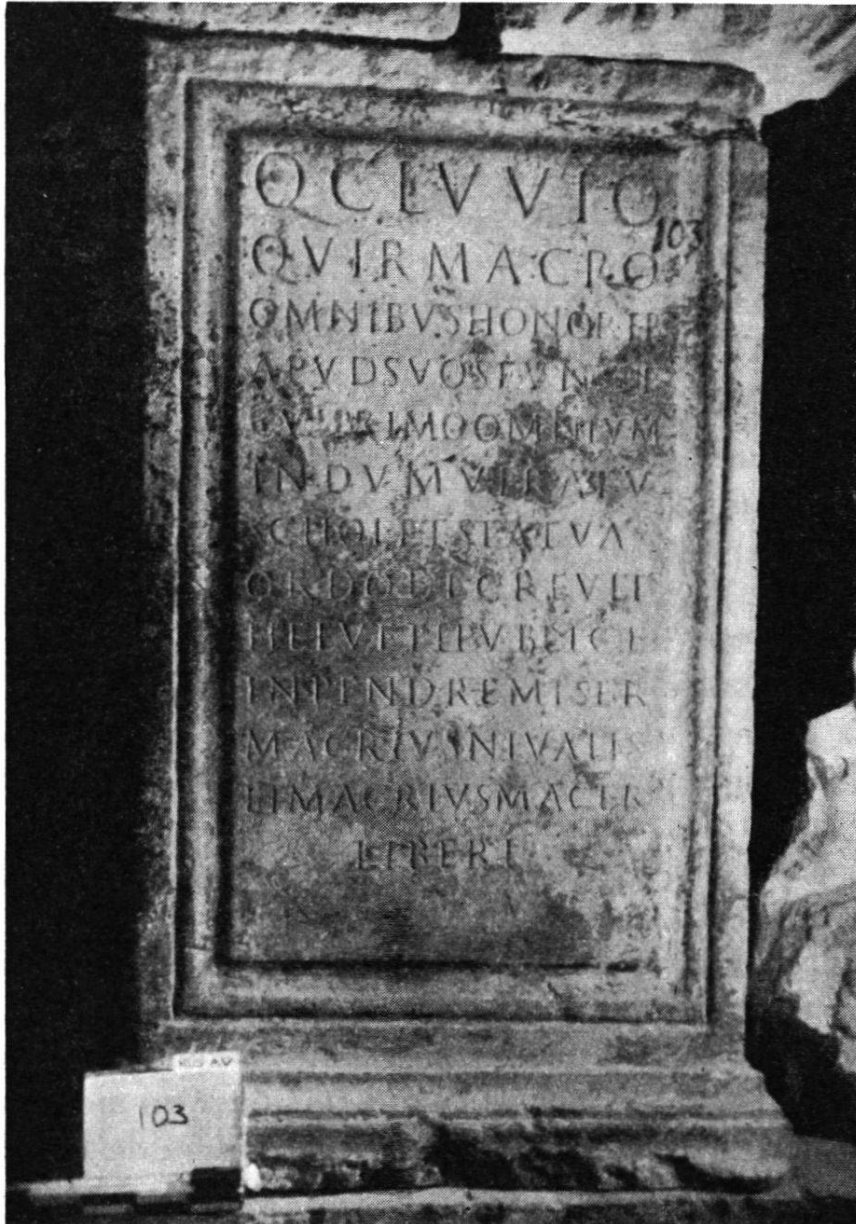 Q CLVVIO
103
QVIR MACRO
OMNIBVS HONORIB
APVD SVOS FVNCT
CVI PRIMO OMNIVM
IN DVMVIRATV
SCHOL ET STATVAS
ORDO DECREVIT
HELVETI PVBLICE
INPEND REMISER
MACRIVS NIVALIS
ET MACRIVS MACER
LIBERI
103